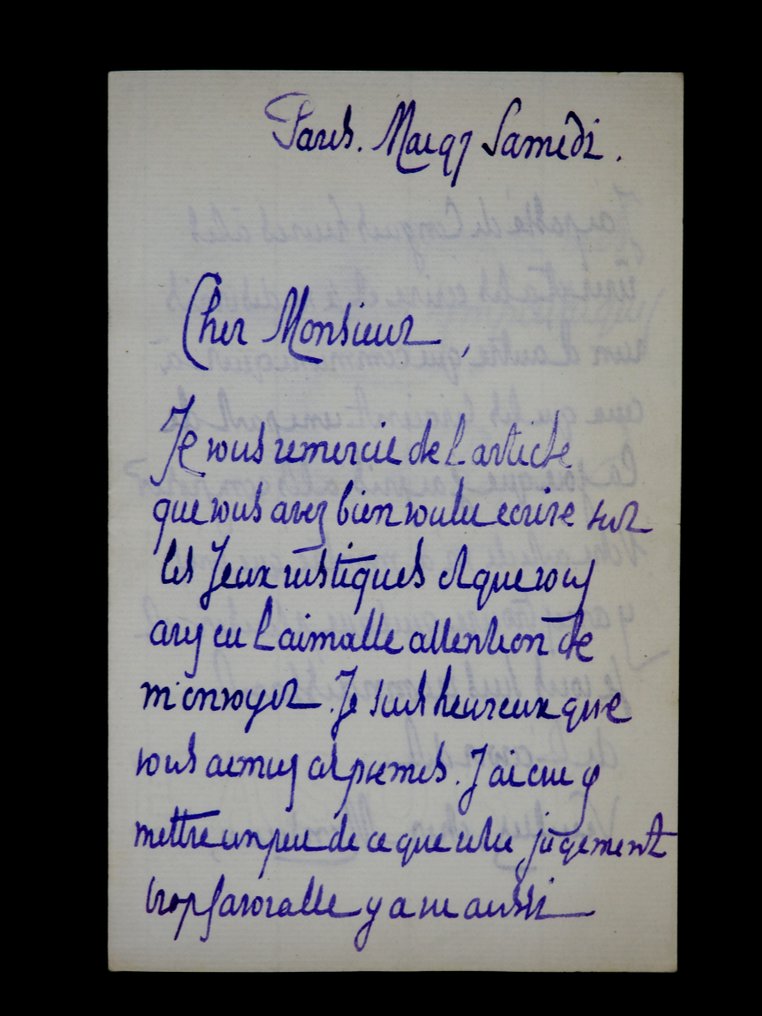 Paris. Mai 97 Samedi.
Cher Monsieur,
Je vous remercie de l'article
que vous avez bien voulu ecrire sur
les Jeux rustiques et que vous
avez eu l'aimable attention de
m'envoyer. Je suis heureux que
vous aimiez ces poemes. J'ai cru y
mettre un peu de ce que votre jugement
trop favorable y a vu aussi